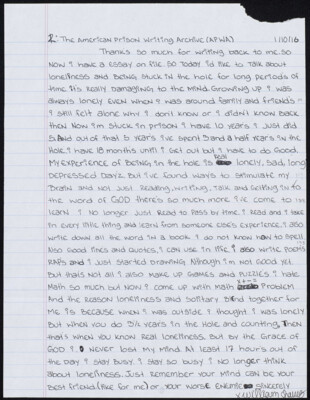 2: The American Prison Writing Archive (APWA) 1/10/16
Thanks so much for writing back to me. So
Now I have a essay on file. So today I'd like to talk about
loneliness and being stuck in the hole for long periods of
time. It's really damaging to the mind. Growing up I was
always lonely even when I was around family and friends
I still felt alone why I don't know or I didn't know back
then. Now I'm stuck in prison I have 10 years I just did
5. And out of that 5 years I've spent 3 and a half years in the
Hole. I have 18 months until I get out but I have to do Good.
My experience of being in the hole is Real lonely, sad, long
Depressed Dayz. But I've found ways to stimulate my
Brain and not just Reading, writing, talk and getting in to
the word of GOD there's so much more I've come to
learn. I no longer just Read to pass by time. I read and I take
in every little thing and learn from someone else's experience. I also
write down all the word in a book I do not know how to spell.
Also good lines and quotes, I can use in life. I also write poems
RAPS and I just started Drawing Although I'm not Good yet.
But thats not all I also make up GAMES and PUZZLES I hate
Math so much but now I come up with math Problem.
And the reason loneliness and solitary Bind together for
Me is because when I was outside I thought I was lonely
But when you do 3½ years in the Hole and counting. Then
that's when you know real loneliness. But by the Grace of
GOD I never lost my mind. At least 17 hours out of
the day I stay Busy. I stay so busy I no longer think
about loneliness. Just remember your mind can be your
Best friend (like for me) or your worse Enemie sincerely
William